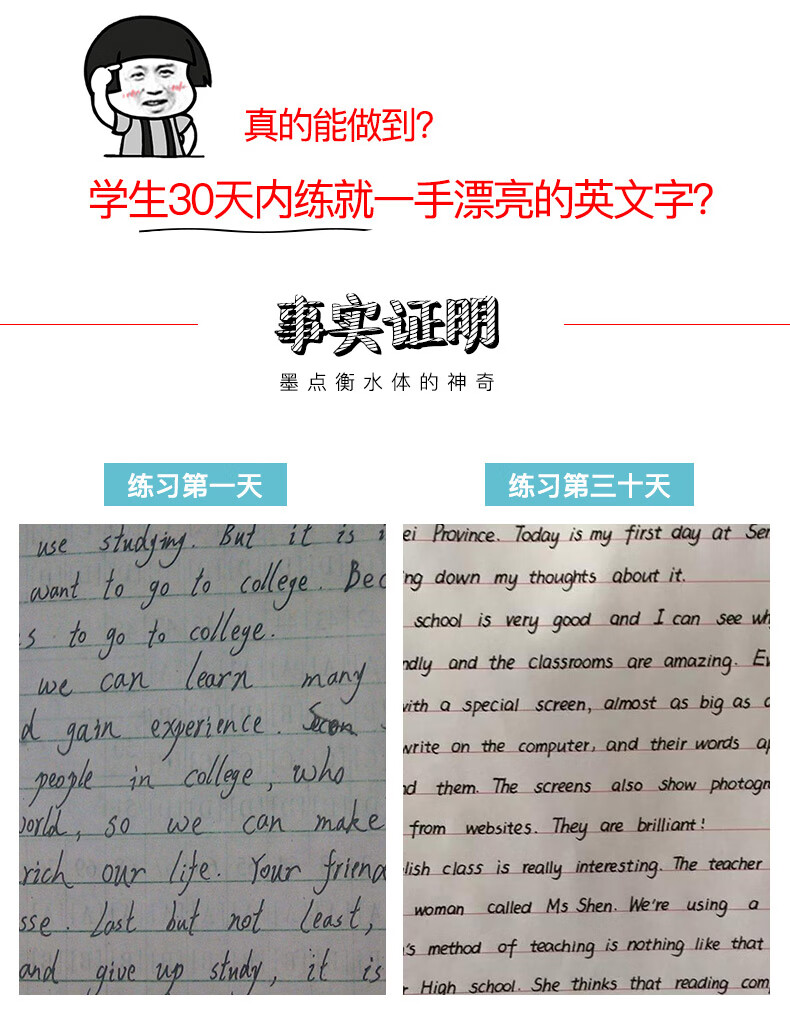 真的能做到?
学生30天内练就一手漂亮的英文字?
事实证明
墨点衡水体的神奇
练习第一天
use studying. But it is
want to go to college. Bec
s to go to college.
we can learn many
d gain experience.
people in college, who
world, so we can make
rich our life. Your friend
sse. Last but not least,
and give up study, it is
练习第三十天
ei Province. Today is my first day at Sen
ng down my thoughts about it.
school is very good and I can see wh
ndly and the classrooms are amazing. Ev
with a special screen, almost as big as a
write on the computer, and their words ap
nd them. The screens also show photogr
from websites. They are brilliant!
lish class is really interesting. The teacher
woman called Ms Shen. We're using a
's method of teaching is nothing like that
r High school. She thinks that reading com